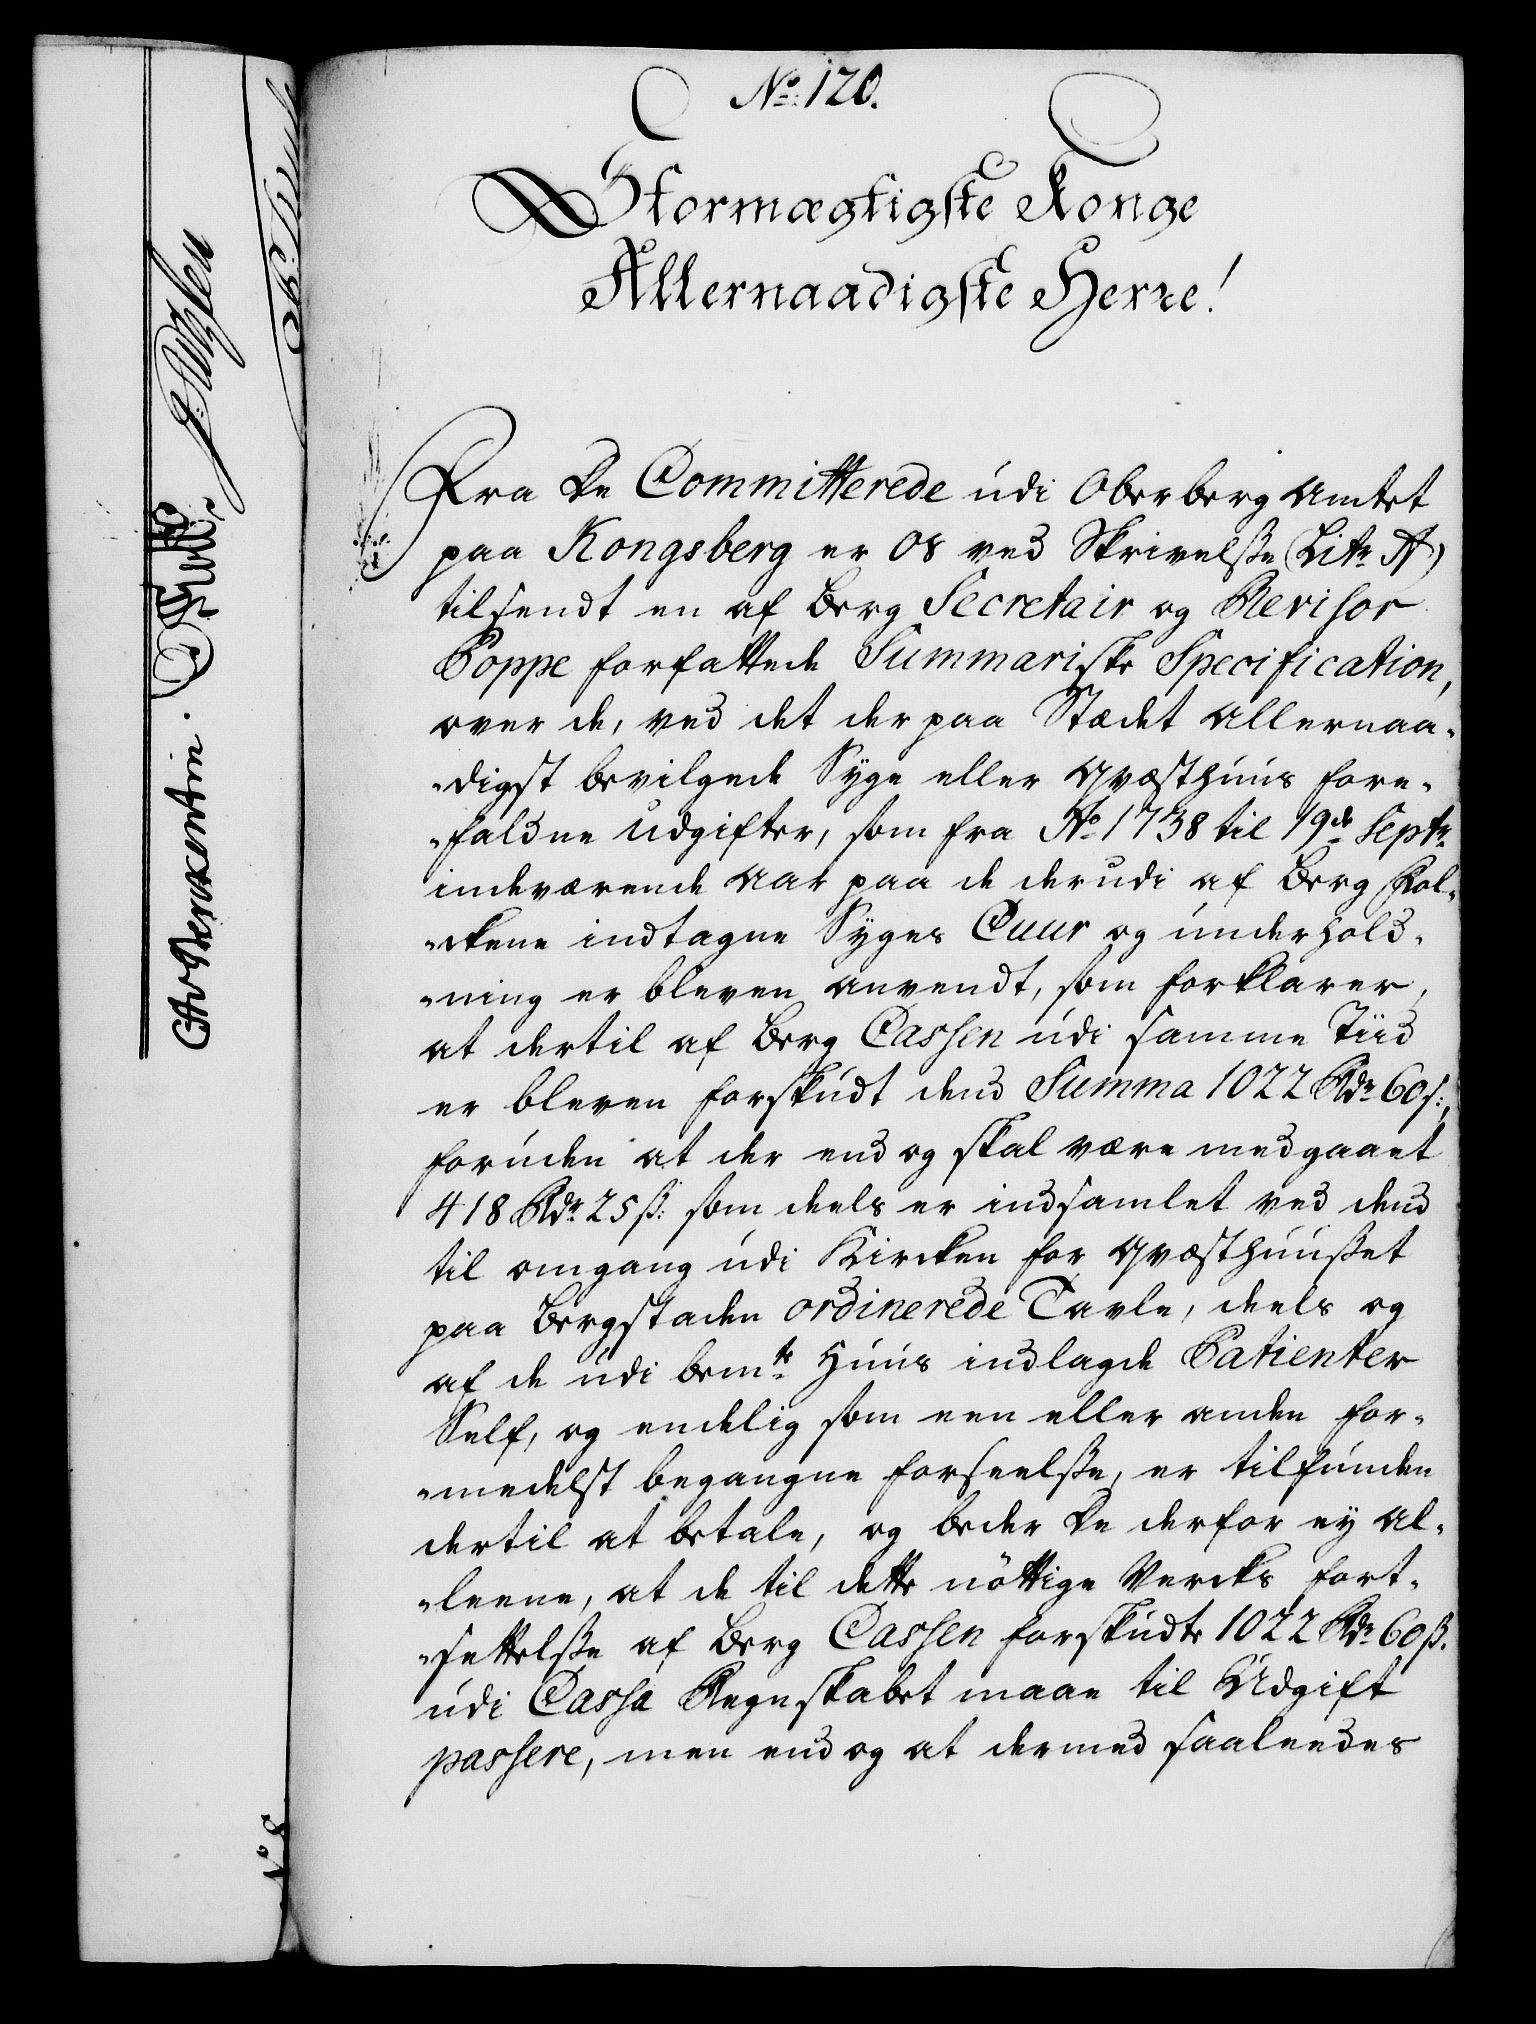 No: 120.
Stormægtigste Konge
Allernaadigste Herre!
Fra De Committerede udi Oberberg Amtet
paa Kongsberg er os ved Skrivelße (Litr A)
tilsendt en af Berg Secretair og Revisor
Poppe forfattede Summariske Specification,
over de, ved det der paa Stædet Allernaa-
-digst bevilgede Syge eller Qvæsthuus fore-
-faldne Udgifter, som fra Ao 1738 til 19de Septr
indeværende Aar paa de derudi af Berg Fol-
-ckene indtagne Syges Cuur og underhold-
-ning er bleven anvendt, som forklarer,
at dertil af Berg Cassen udi samme Tiid
er bleven forskudt dend Summa 1022 Rdr 60 s:,
foruden at der end og skal være medgaaet
418 Rdr 25 ß: som deels er indsamlet ved dend
til omgang udi Kircken for Qvæsthuußet
paa Bergstaden ordinerede Tavle, deels og
af de udi bemte Huus indlagde Patienter
Self, og endelig som een eller anden for-
-medelst begangne forseelße, er tilfunden
dertil at betale, og beder De derfor ey al-
-leene, at de til dette nöttige Vercks fort-
-settelße af Berg Cassen forskudte 1022 Rdr 60 ß.
udi Cassa Regnskabet maae til Udgift
passere, men end og at dermed saaleedes